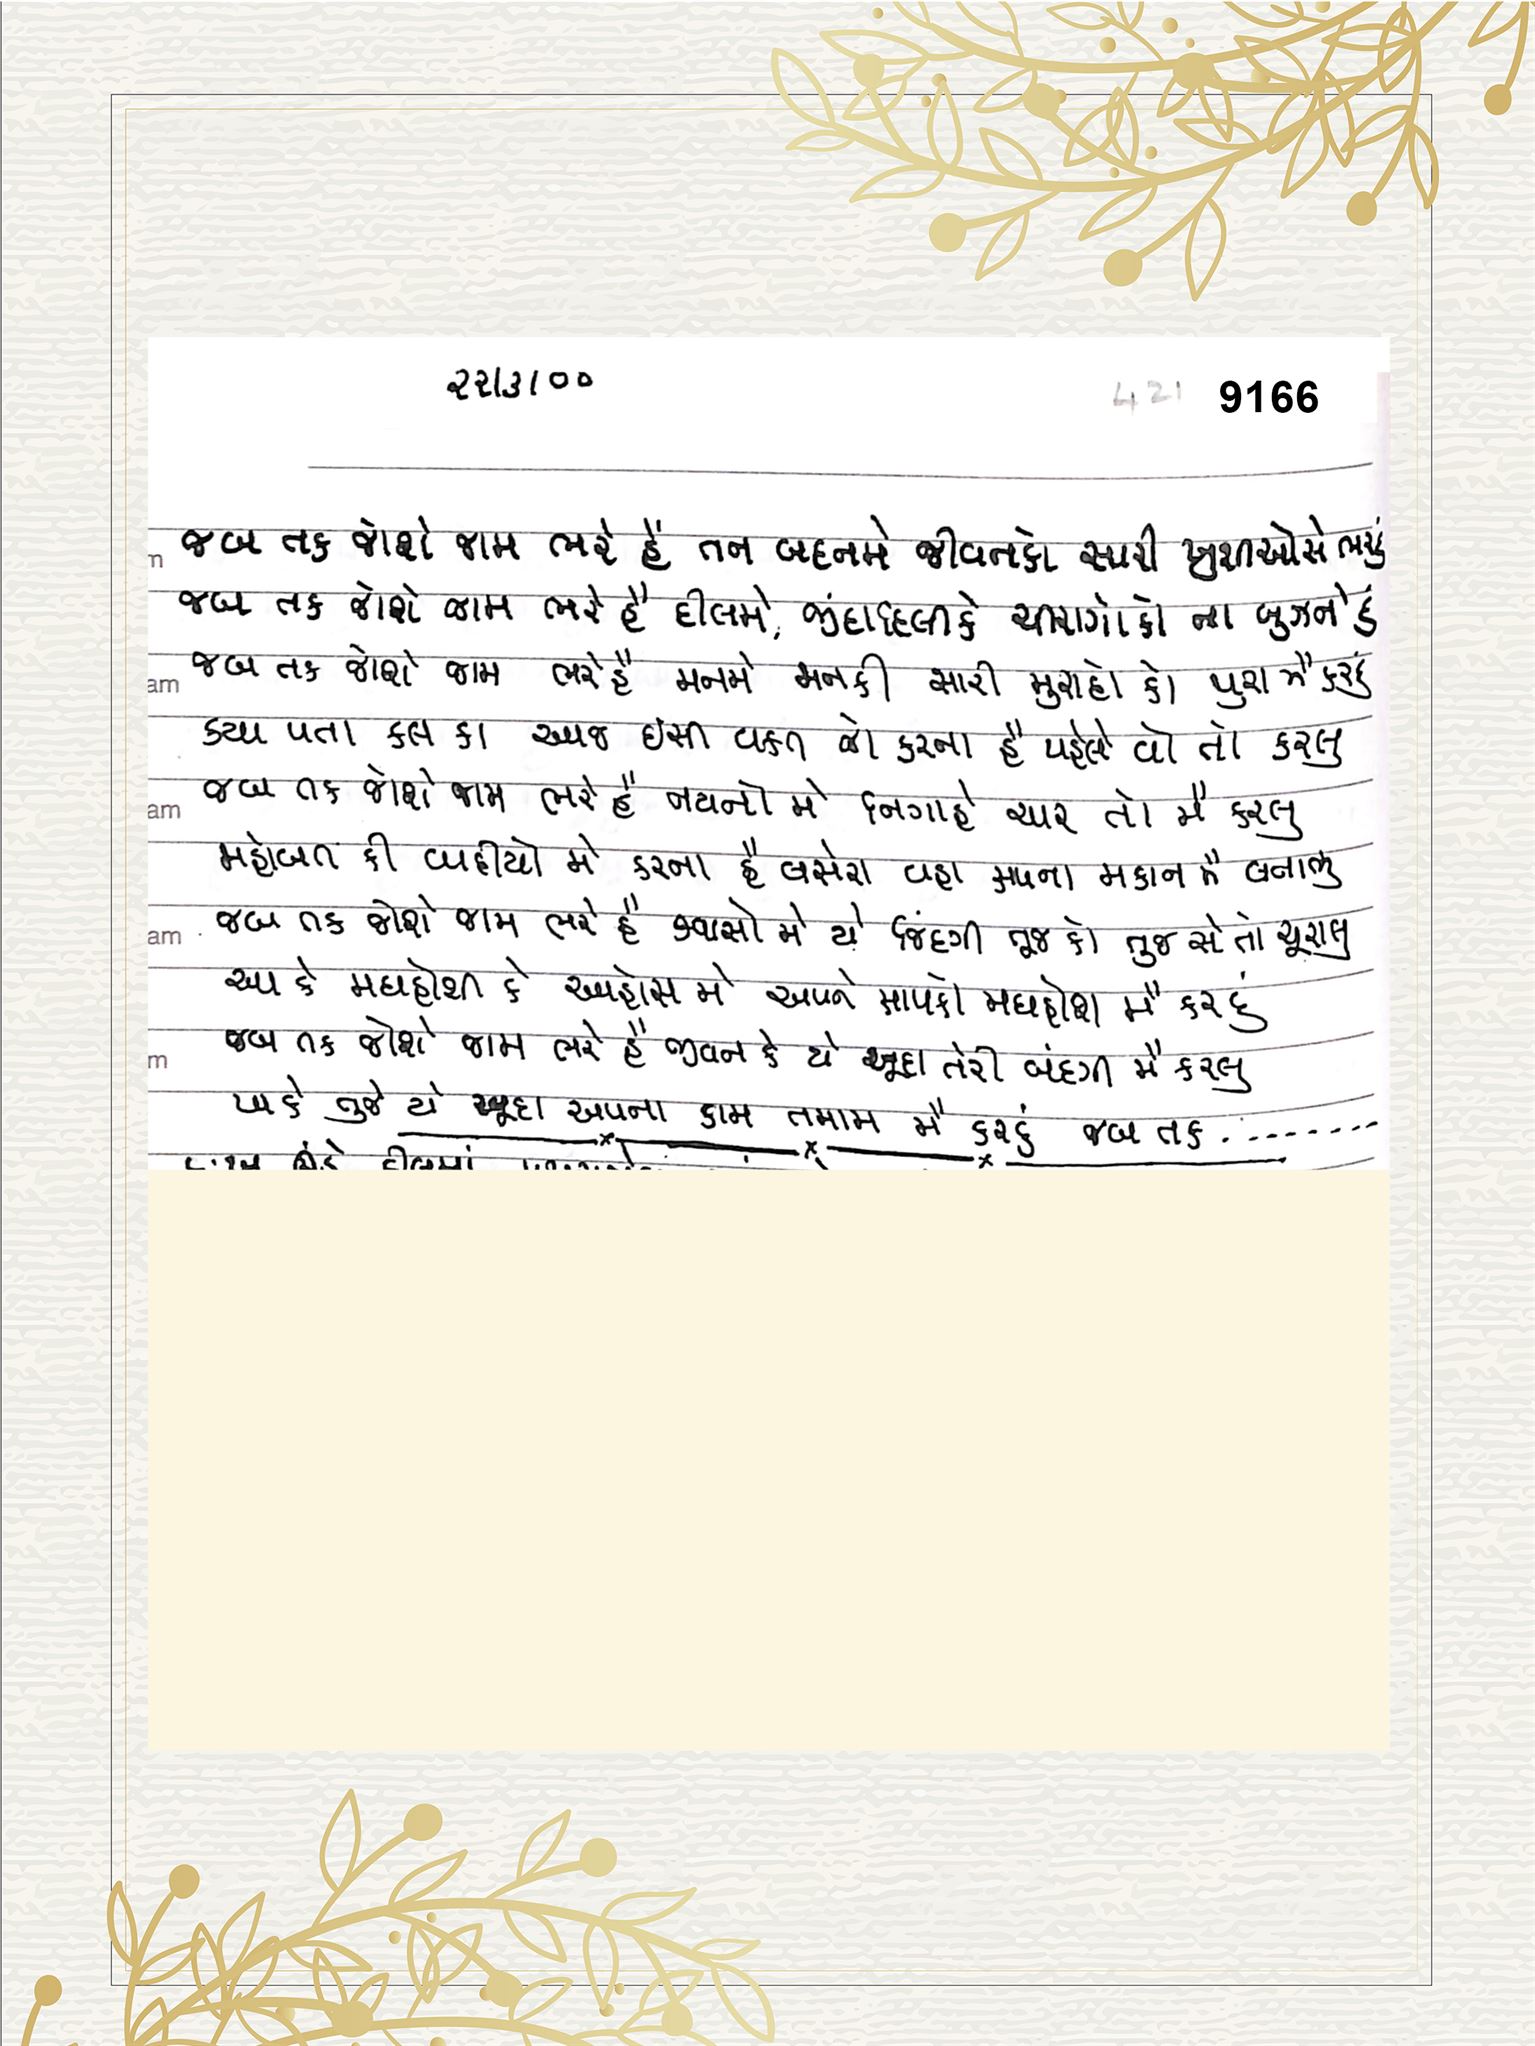 ૨૨/૩/૦૦
421 9166
જબ તક જોશે જામ ભરે હૈ તન બદનમે જીવનકો સારી ખુશીઓસે ભરદું
જબ તક જોશે જામ ભરે હૈ દીલમે, જીંદાદિલીકે ચીરાગોકો ના બુઝને દું
am જબ તક જોશે જામ ભરે હૈ મનમે મનકી સારી મુરાદો કો પુરા મૈ કરદું
ક્યા પતા કલ કા આજ ઇસી વક્ત જો કરના હૈ પહેલે વો તો કરલુ
am જબ તક જોશે જામ ભરે હૈ નયનો મે નિગાહે ચાર તો મૈ કરલુ
મહોબત કી વાદીયો મે કરના હૈ બસેરા વહા અપના મકાન મૈ બનાલુ
am જબ તક જોશે જામ ભરે હૈ શ્વાસો મે યે જિંદગી તૂજ કો તુજ સે તો ચૂરાલુ
આ કે મદહોશી કે આહોસ મે અપને આપકો મદહોશ મૈ કર દું
m જબ તક જોશે જામ ભરે હૈ જીવન કે યે ખૂદા તેરી બંદગી મૈ કરલુ
પા કે તુજે યે ખૂદા અપના કામ તમામ મૈ કરદું જબ તક .........